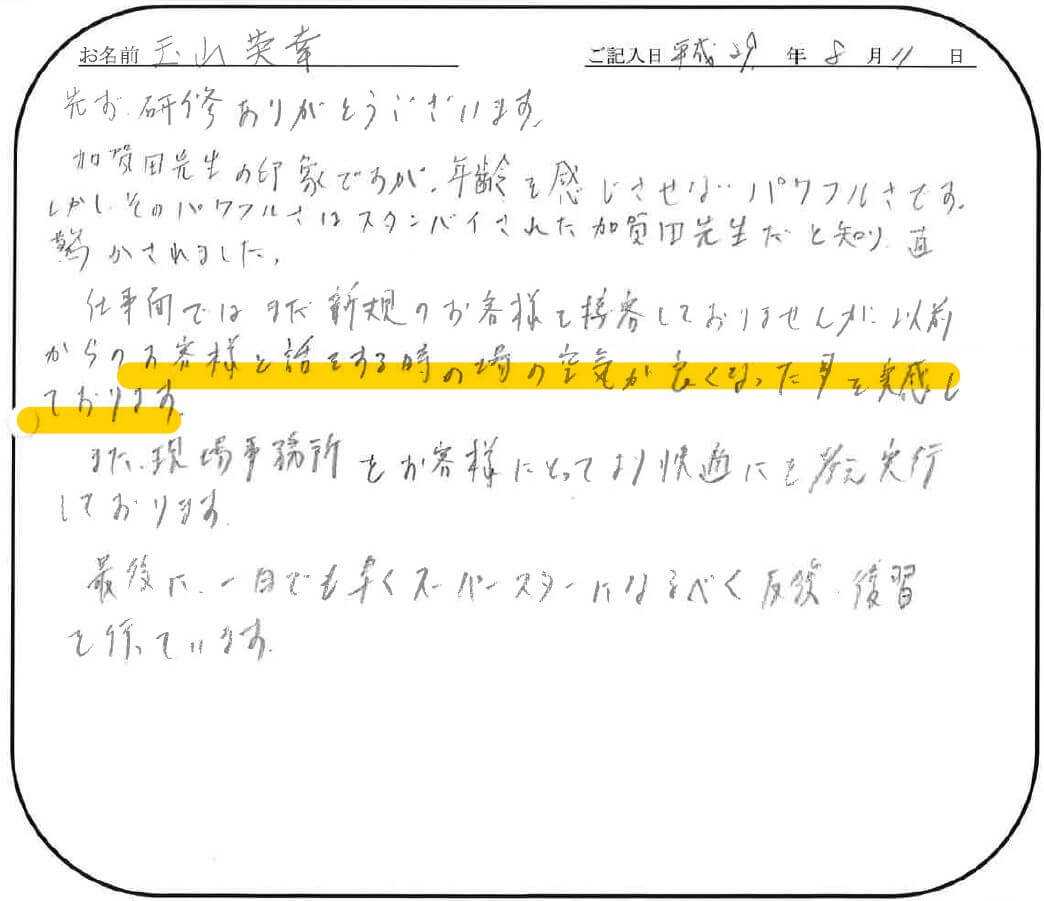 お名前 玉山英幸 ご記入日 平成29年8月11日
先ず、研修ありがとうございます。
加賀田先生の印象ですが、年齢を感じさせないパワフルさです。
しかし、そのパワフルさはスタンバイされた加賀田先生だと知り、直
驚かされました。
仕事面ではまだ新規のお客様を接客しておりませんが、以前
からのお客様と話をする時の場の空気が良くなった事を実感し
ております。
また、現場事務所をお客様にとってより快適にを考え実行
しております。
最後に、一日でも早くスーパースターになるべく反復、復習
を行っています。